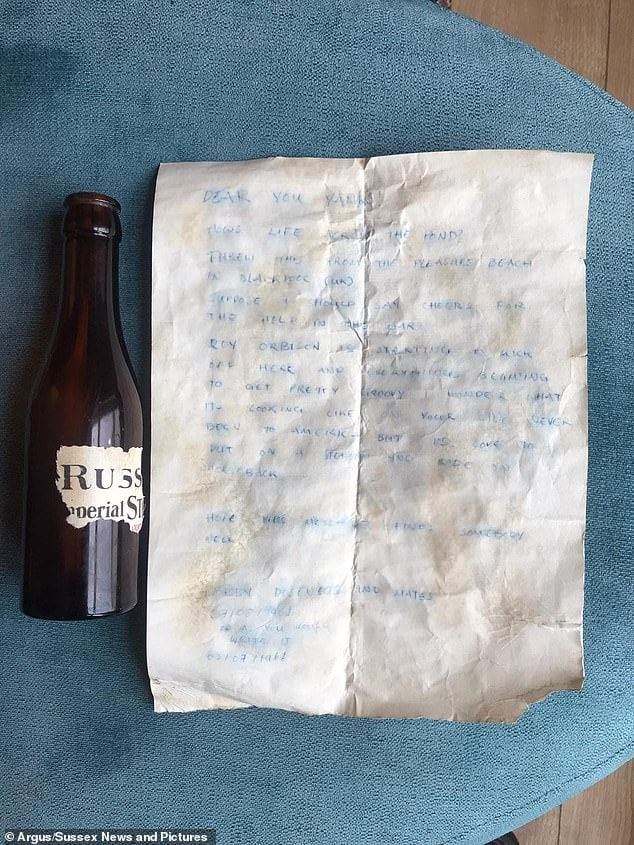 RUSS
mperial ST
DEAR YOU YANKS
HOWS LIFE ACROSS THE POND?
THREW THIS FROM THE PLEASURE BEACH
IN BLACKPOOL (UK)
SUPPOSE I SHOULD SAY CHEERS FOR
THE HELP IN THE WAR
ROY ORBISON IS STARTING TO KICK
OFF HERE AND STARTING
TO GET PRETTY GROOVY I WONDER WHAT
ITS LOOKING LIKE IN YOUR NEVER
BEEN TO AMERICA BUT ID LOVE TO
PUT ON A STETSON AND RIDE ON
HORSEBACK
HOPE THIS MESSAGE FINDS SOMEBODY
WELL
AND MATES
WRITE IT
© Argus/Sussex News and Pictures